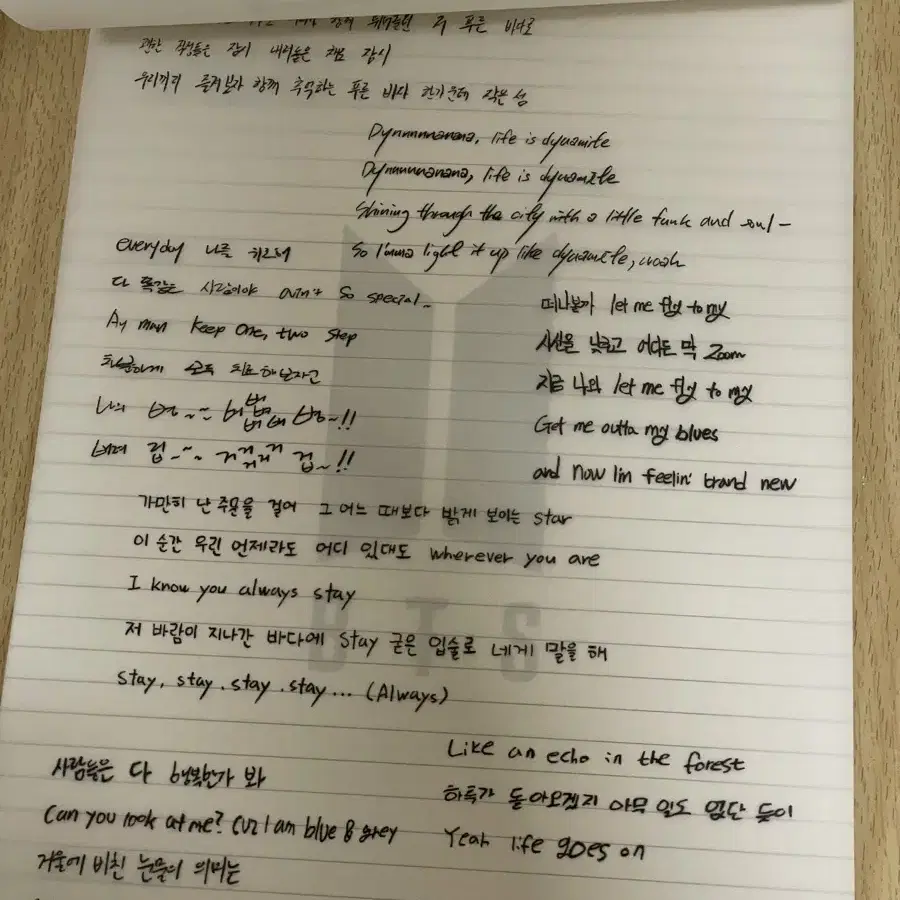 함께 뛰어들던 저 푸른 바다로
괜한 걱정들은 잠시 내려놓은 채로 잠시
우리끼리 즐겨보자 함께 추억하는 푸른 바다 한가운데 작은 섬
Dynnnnnanana, life is dynamite
Dynnnnnanana, life is dynamite
Shining through the city with a little funk and soul-
So I'mma light it up like dynamite, woah
everyday 나를
다 똑같은 사람이야 ain't so special~
Ay man keep one, two step
차분하게 모두 치료해보자고
나의 병~~ 벼 벼 볍 벼벼 병~!!
버려 겁~~~ 거거거거거거 겁~!!
떠나볼까 let me fly to my
시선을 낮추고 어디든 막 Zoom
지금 나와 let me fly to my
Get me outta my blues
and now I'm feelin' brand new
가만히 난 주문을 걸어 그 어느 때보다 밝게 보이는 star
이 순간 우린 언제라도 어디 있대도 wherever you are
I know you always stay
저 바람이 지나간 바다에 stay 굳은 입술로 네게 말을 해
stay, stay. stay. stay... (Always)
BTS
사람들은 다 행복한가 봐
Can you look at me? cuz I am blue & grey
거울에 비친 눈물의 의미는
Like an echo in the forest
하루가 돌아오겠지 아무 일도 없단 듯이
Yeah life goes on